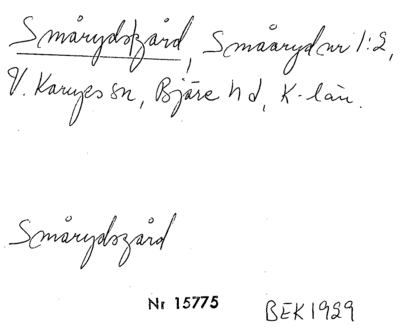 Smårydsgård, Småaryd nr 1:2,
V. Karups sn, Bjäre hd, K-län.
Smårydsgård
Nr 15775
BEK 1929